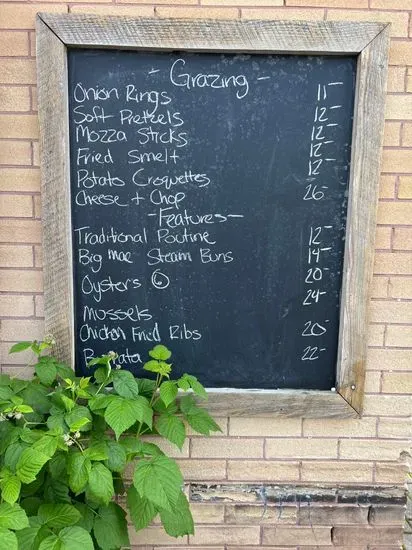 - Grazing -
Onion Rings 11-
Soft Pretzels 12-
Mozza Sticks 12-
Fried Smelt 12-
Potato Croquettes 12-
Cheese + Chop 26-
- Features -
Traditional Poutine 12-
Big mac Steam Buns 14-
Oysters 6 20-
Mussels 24-
Chicken Fried Ribs 20-
22-